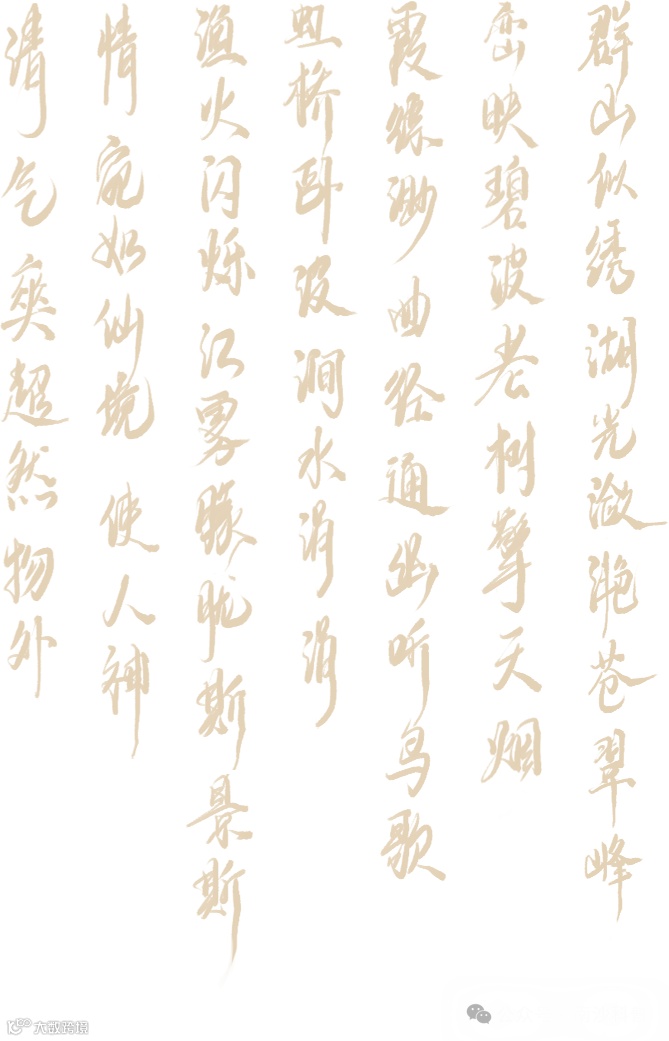 群山似绣湖光潋滟苍翠峰
峦映碧波老树擎天烟
霞缭渺曲径通幽听鸟歌
虹桥卧波涧水涓涓
渔火闪烁江雾朦胧斯景斯
情宛如仙境 使人神
清气爽超然物外
大数跨境